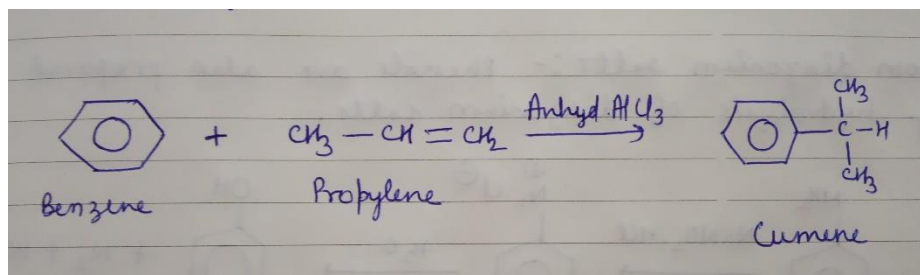 + CH3 — CH = CH2 Anhyd. AlCl3 CH3
C — H
CH3
Benzene Propylene Cumene